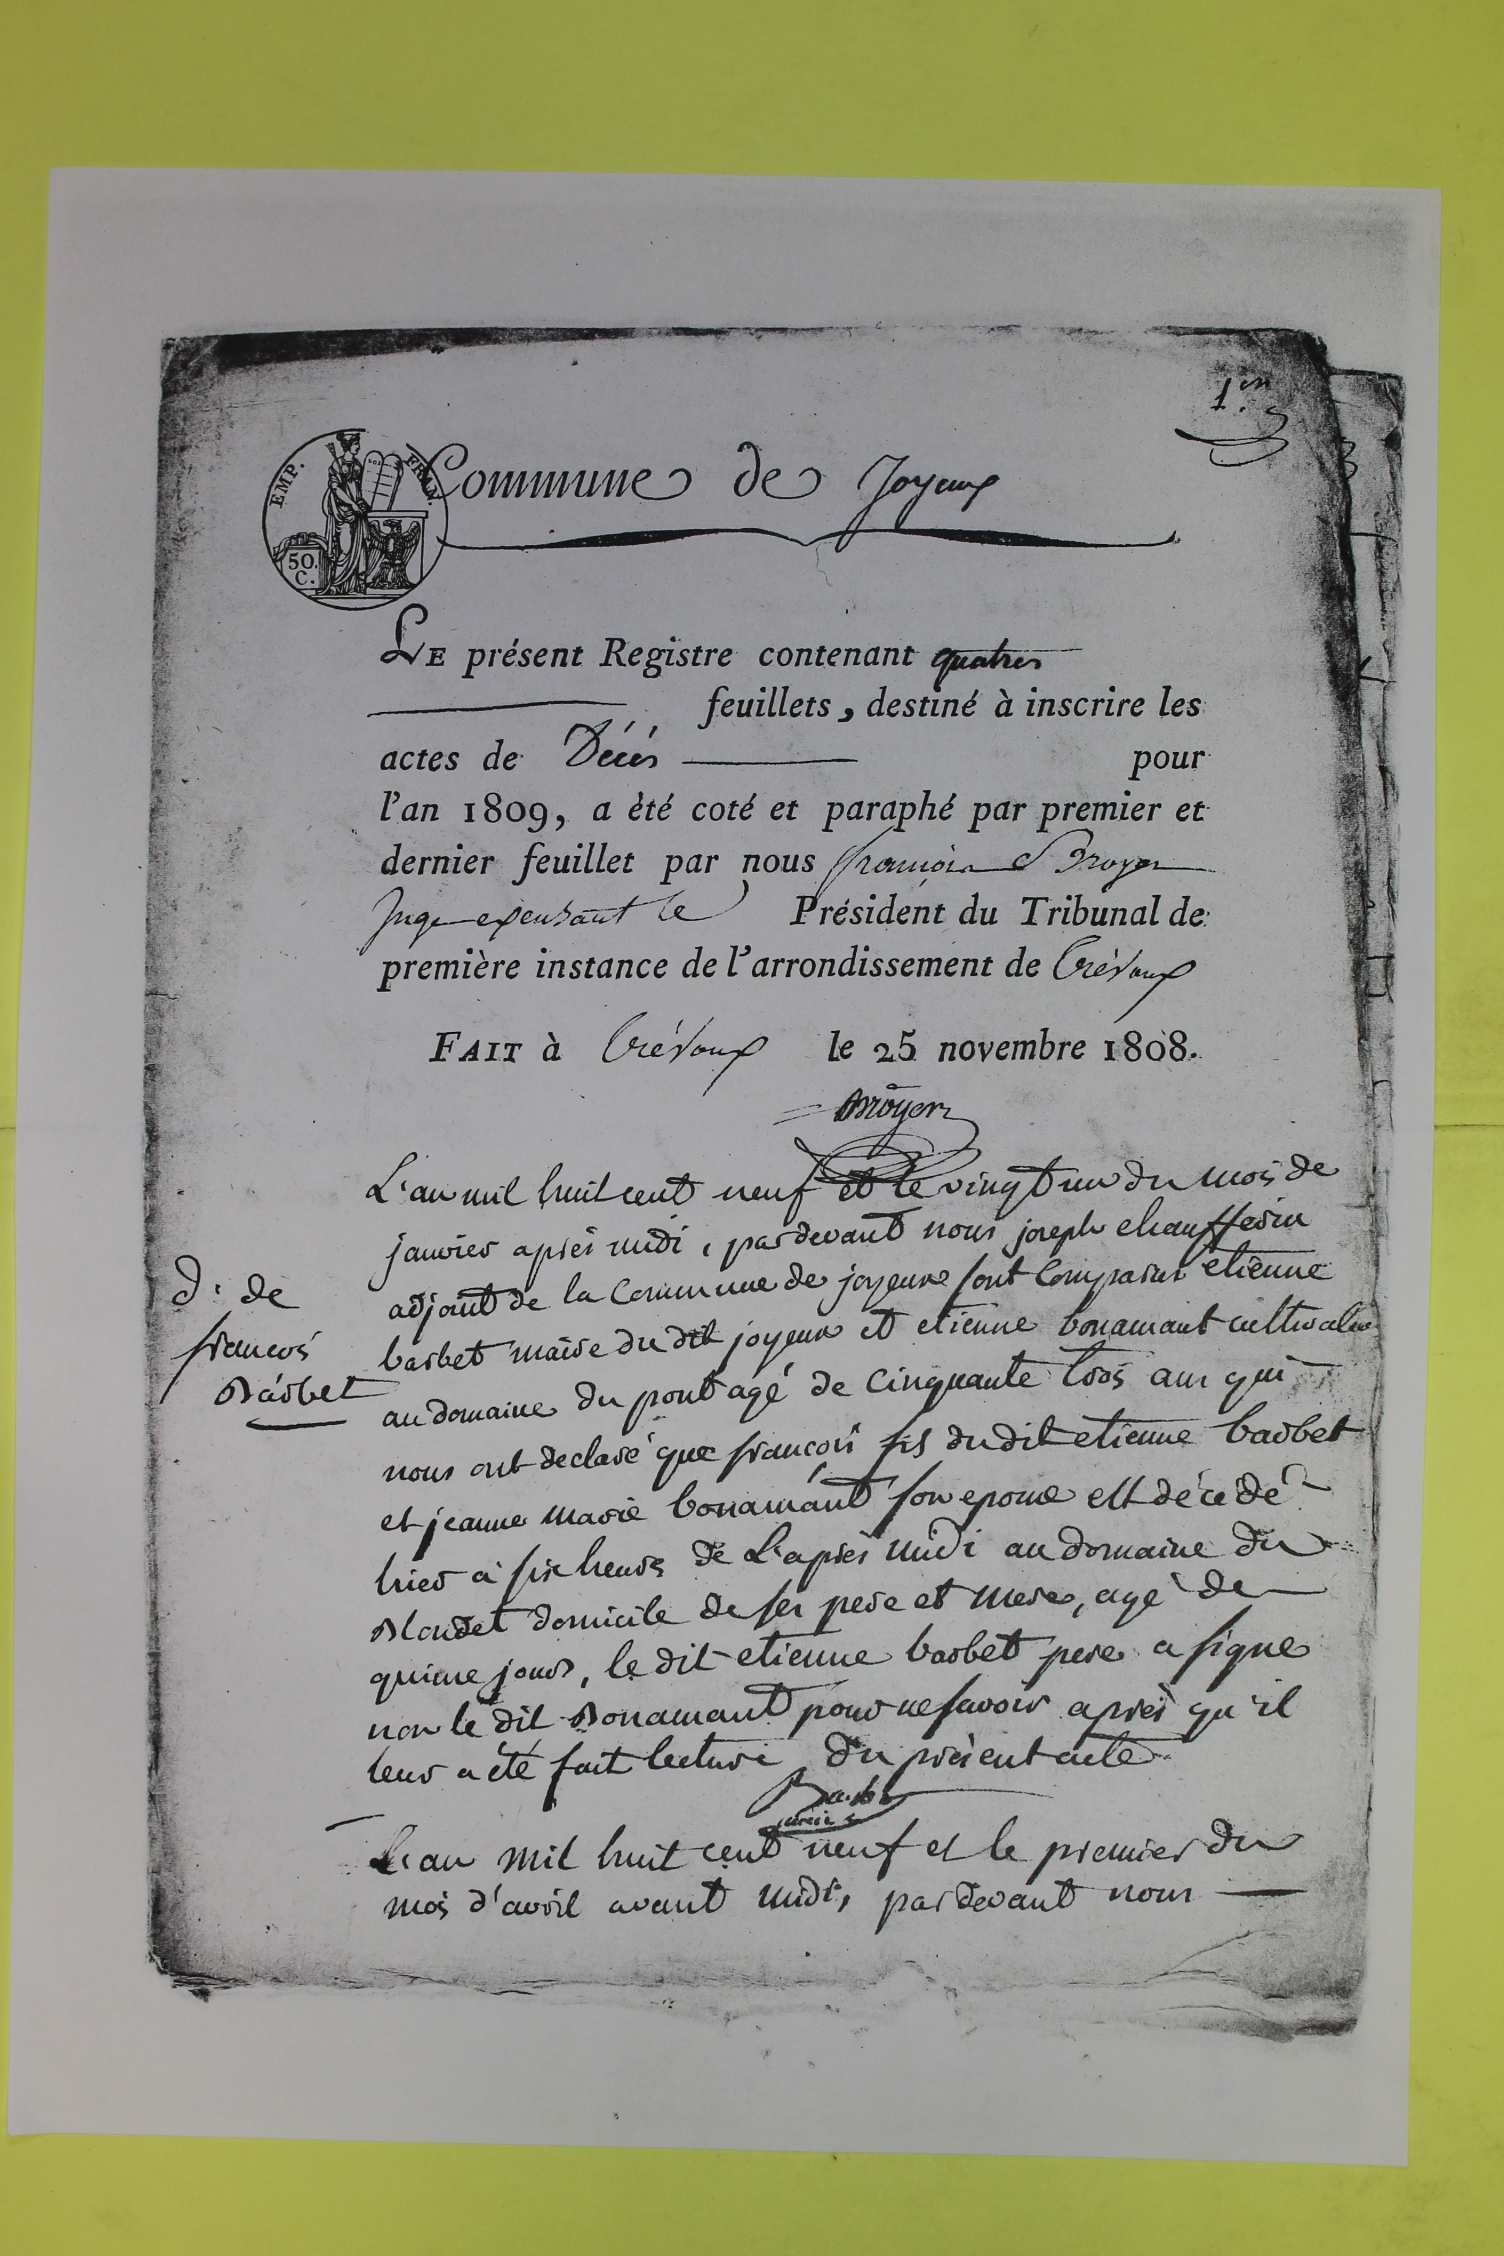 1.er
EMP. FRAN.
50.
C.
Commune de Joyeux
LE présent Registre contenant quatres
feuillets, destiné à inscrire les
actes de Décés pour
l'an 1809, a èté coté et paraphé par premier et
dernier feuillet par nous françois Broyer
Juge exerçant le Président du Tribunal de
première instance de l'arrondissement de Trévoux
FAIT à Trévoux le 25 novembre 1808.
Broyer
L'an mil huit cent neuf et le vingt un du mois de
janvier après midi, pardevant nous joseph chaufferin
adjoint de la Commune de joyeux sont Comparus etienne
barbet maire du dit joyeux et etienne bonamant cultivateur
au domaine du pont agé de Cinquante trois ans qui
nous ont declaré que françois fils du dit etienne barbet
et jeanne marie bonamant son epouse est décédé
hier à six heures de L'après midi au domaine du
Mondet domicile de ses pere et mere, agé de
quinze jours, le dit etienne barbet pere a signe
non le dit Bonamant pour ne savoir après qu'il
leur a été fait lecture du présent acte
d. de
francois
Barbet
Barbet
L'an mil huit cent neuf et le premier du
mois d'avril avant midi, pardevant nous